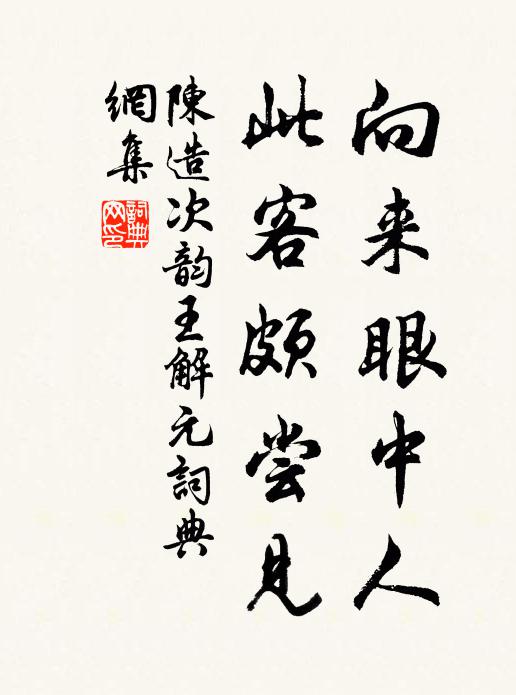 向来眼中人
此客頗尝見
陳造次韵王解元詞典
網集
詞典网印